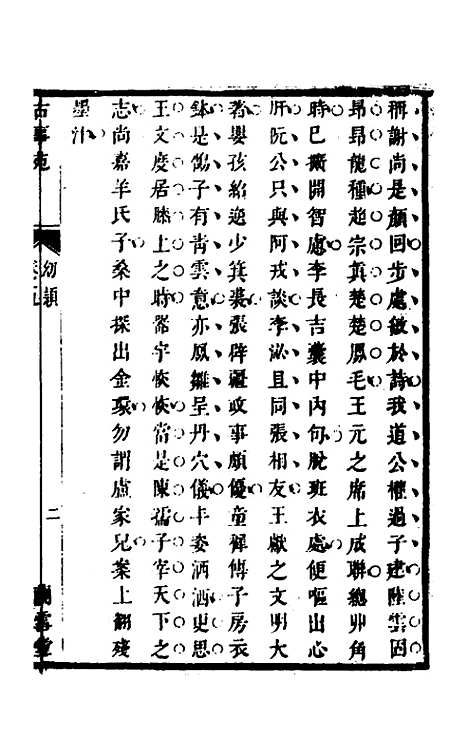 稱謝尚是顏回步處敏於詩我道公權過子建陸雲固
昂昂龍種趙宗真楚楚鳳毛王元之席上成聯總丱角
時已撕開智慮李長吉囊中內句脫班衣處便嘔出心
肝阮公只與阿戎談李泌且同張相友王獻之文明大
著嬰孩紹逸少箕裘張辟疆政事頗優童穉傅子房衣
鉢是鵠子有青雲意亦鳳雛呈丹穴儀丰姿洒洒更思
王文度居膝上之時器宇恢恢當是陳孺子宰天下之
志尚嘉羊氏子桑中探出金環勿謂盧家兒案上翻殘
墨汁
古事苑
幼類
二
蘭雪堂